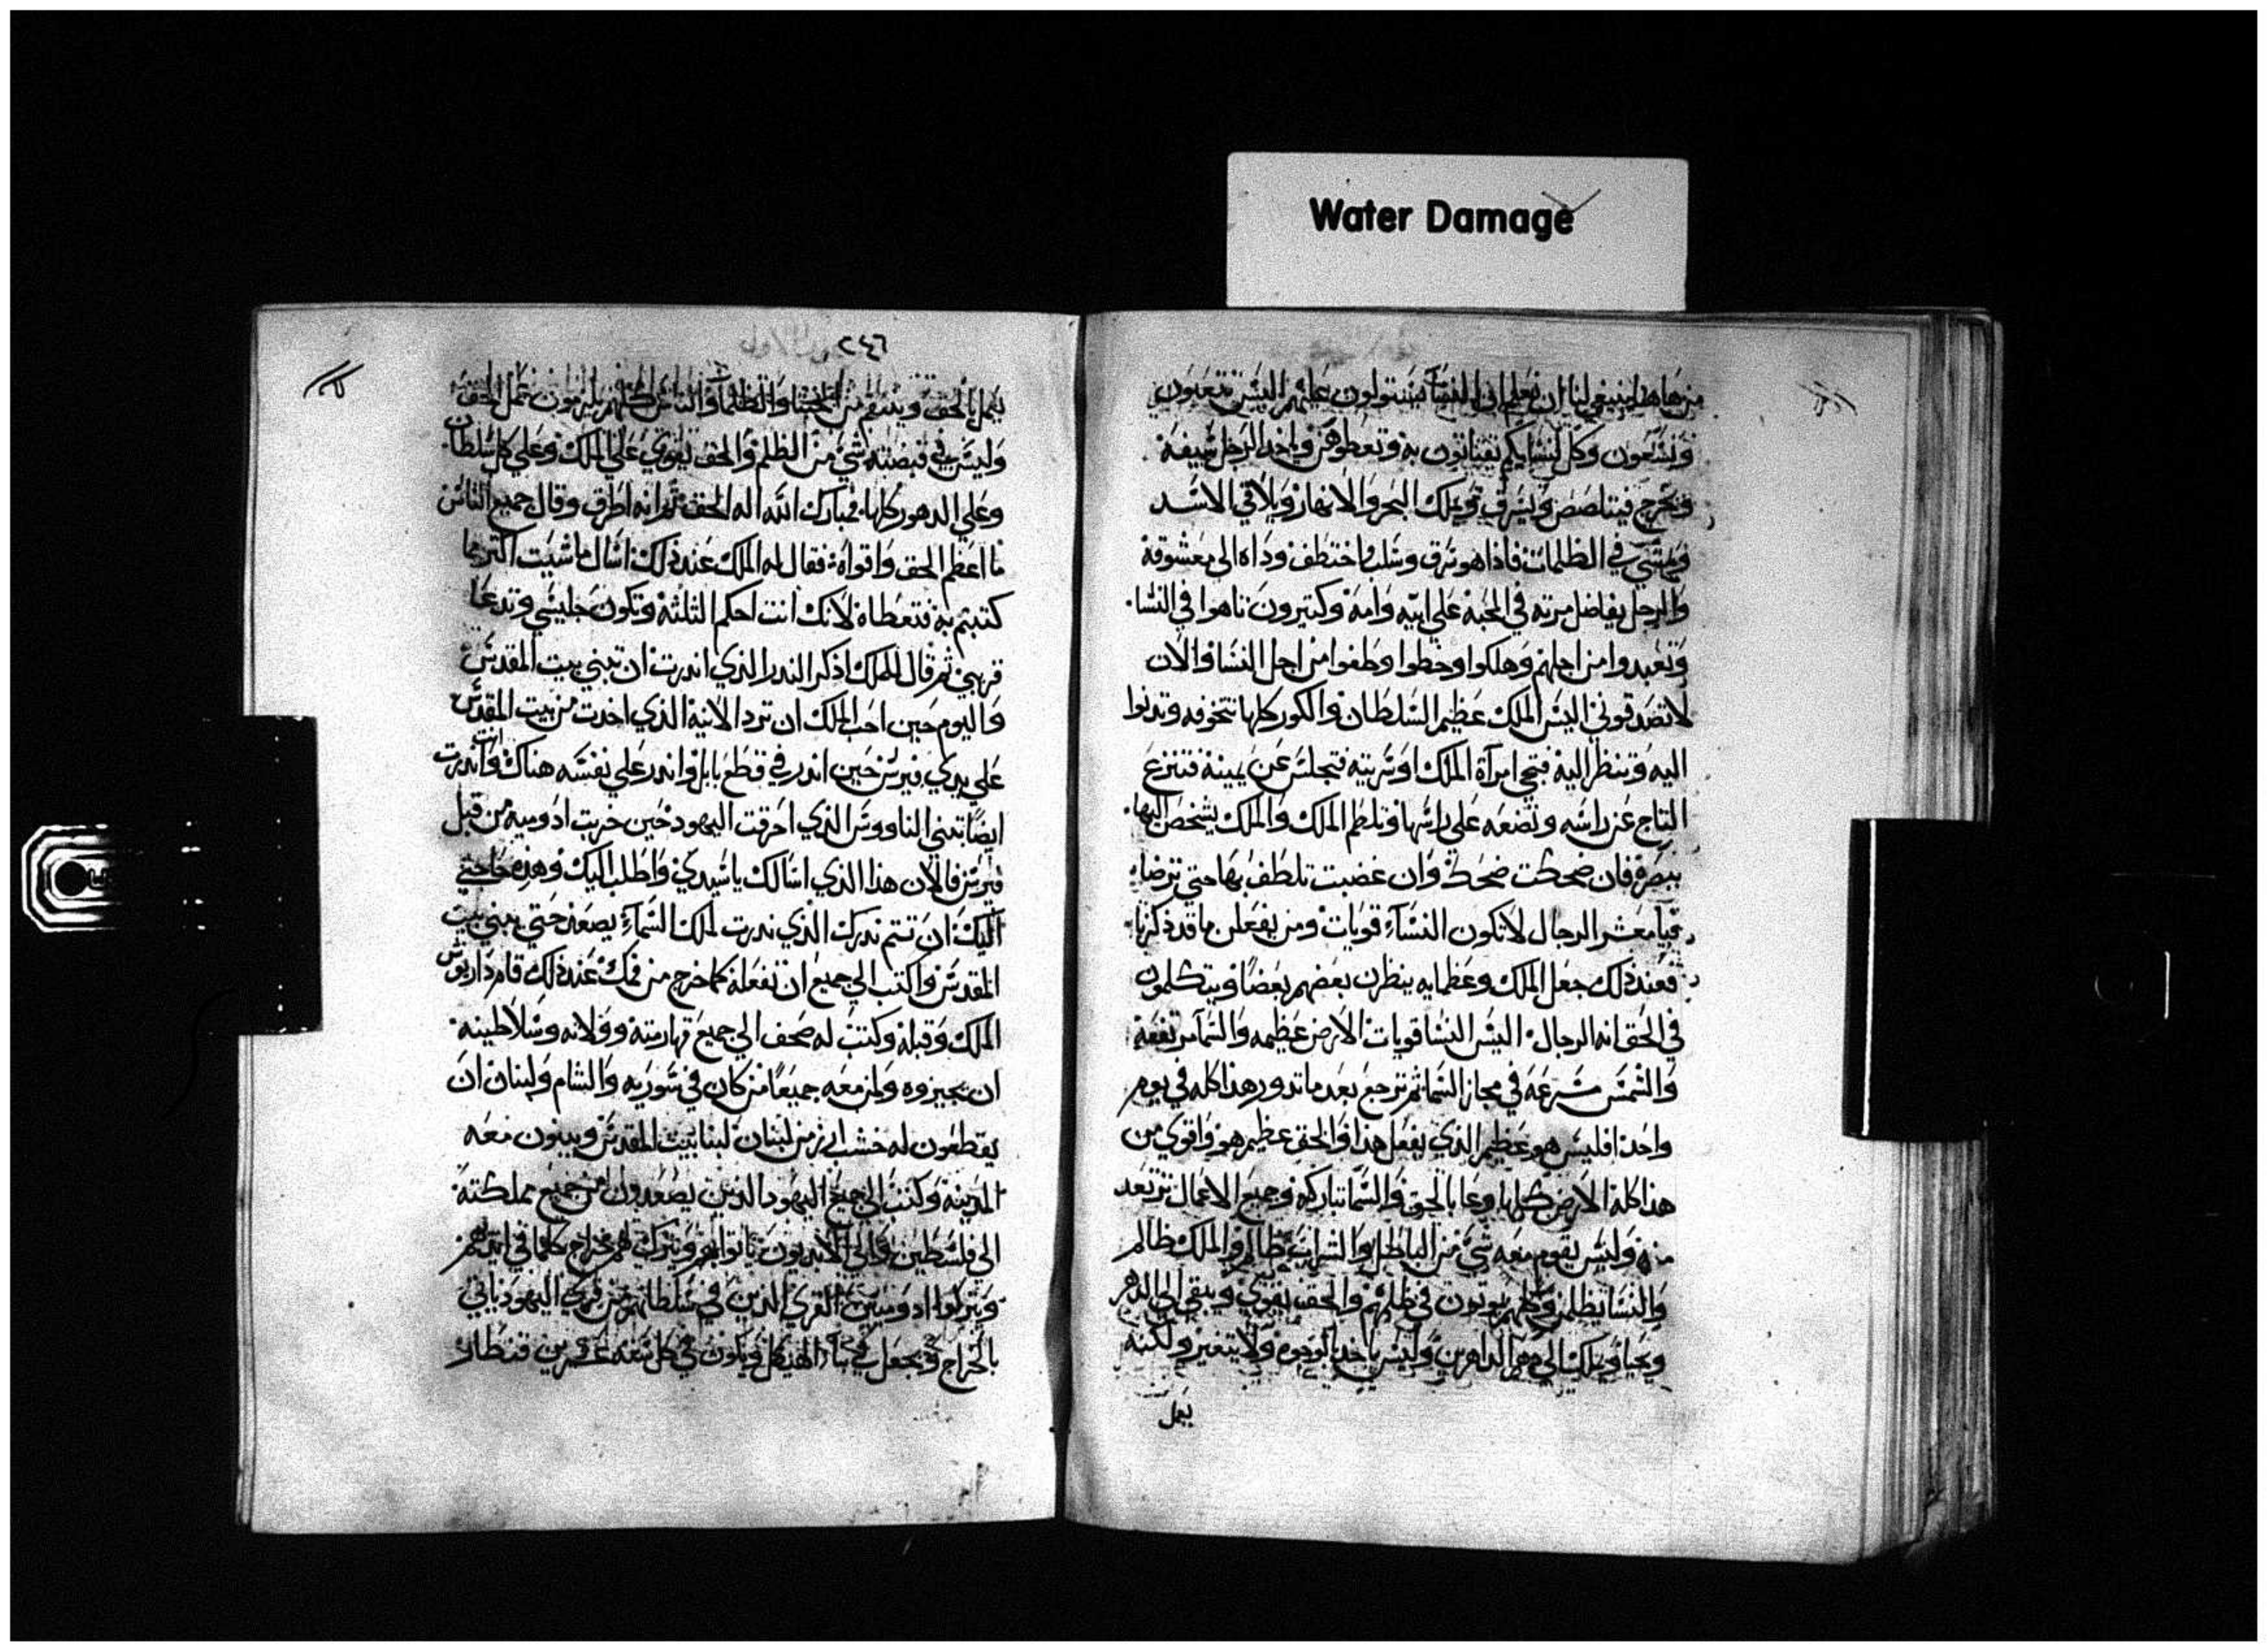 Water Damage
من هاهنا ينبغي لنا ان نعلم ان النسا يستولون عليهم اليس تتعبون
وتسعون وكل لنسايكم تفتاتون به وتعطوهن وياخد الرجل سيفه
ويخرج فيتلصص ويسرق ويملك البحر والانهار ويلاقي الاسد
ويمشي في الظلمات فاذا هو سرق وسلب واختطف وداه الى معشوقة
والرجل يفاضل مرته في المحبة على ابيه وامه وكتيرون تاهوا في النسا
وتعبدوا من اجلهم وهلكوا وخطوا وطغوا من اجل النسا والان
لا تصدقوني اليس الملك عظيم السلطان والكور كلها تتخوفه وتدنوا
اليه وتنظر اليه فتجي امرآة الملك او سريته فتجلس عن يمينه فتنزع
التاج عن راسه وتضعه على راسها وتلطم الملك والملك يشخص اليها
ببصره فان ضحكت ضحك وان غضبت تلطف بها حتى ترضا
فيا معشر الرجال لا تكون النسآء قويات ومن يفعلن ما قد ذكرنا
فعند ذلك جعل الملك وعظمايه ينظرن بعضهم بعضا ويتكلمون
في الحق انه الرجال اليس النسا قويات الارض عظيمه والسمآ مرتفعة
والشمس مسرعه في مجاز السما ثم ترجع بعد ما تدور هذا كله في يوم
واحد افليس هو عظيم الذي يفعل هذا والحق عظيم هو واقوى من
هذا كله الارض كلها دعا بالحق والسما تباركه وجميع الاعمال ترتعد
منه وليس يقوم معه شي من الباطل والشراب ظالم والملك ظالم
والنسا يظلمن وكلهم يموتون في ظلمهم والحق يقوي ويبقى الى الدهر
ويحيا ويملك الى دهر الداهرين وليس ياخد بالوجوه ولا يتغير ولكنه
يعمل
٢٤٦
يعمل بالحق وينتقم من الخبثا والظلمآ والناس كلهم يلزمون عمل الحق
وليس في قبضته شي من الظلم والحق يقوي على الملك وعلى كل سلطان
وعلى الدهور كلها فمبارك الله اله الحق ثم انه اطرق وقال جميع الناس
ما اعظم الحق واقواه فقال له الملك عند ذلك اسال ما شيت اكتر مما
كتبتم به فتعطاه لانك انت احكم التلثة وتكون جليسي وتدعا
قريبي ثم قال للملك اذكر الندر الذي اندرت ان تبني بيت المقدس
واليوم حين احب الملك ان ترد الانية الذي اخدت من بيت المقدس
على يدي فيرس حين اندر في قطع بابل واندر على نفسه هناك وانت اندرت
ايضا تبني الناووس الذي احرقت اليهود حين خربت ادوميه من قبل
فيرس فالان هذا الذي اسالك يا سيدي واطلب اليك وهذه حاجتي
اليك ان تتم ندرك الذي ندرت لملك السمآء يصعد حتى يبني بيت
المقدس واكتب الى جميع ان تفعله كما خرج من فمك عند ذلك قام داريوش
الملك وقبله وكتب له صحف الى جميع قهارمته وولاته وسلاطينه
ان يجيزوه ولمن معه جميعا من كان في سوريه والشام ولبنان ان
يقطعون له خشب ارز من لبنان لبنا بيت المقدس ويبنون معه
المدينة وكتب الى جميع اليهود الذين يصعدون من جميع مملكته
الى فلسطين
ويتركوا ادوميين القرى الذين في سلطانهم من قرى اليهود ياتي
بالخراج ويجعل في بنآء الهيكل ويكون في كل سنه عشرين قنطار